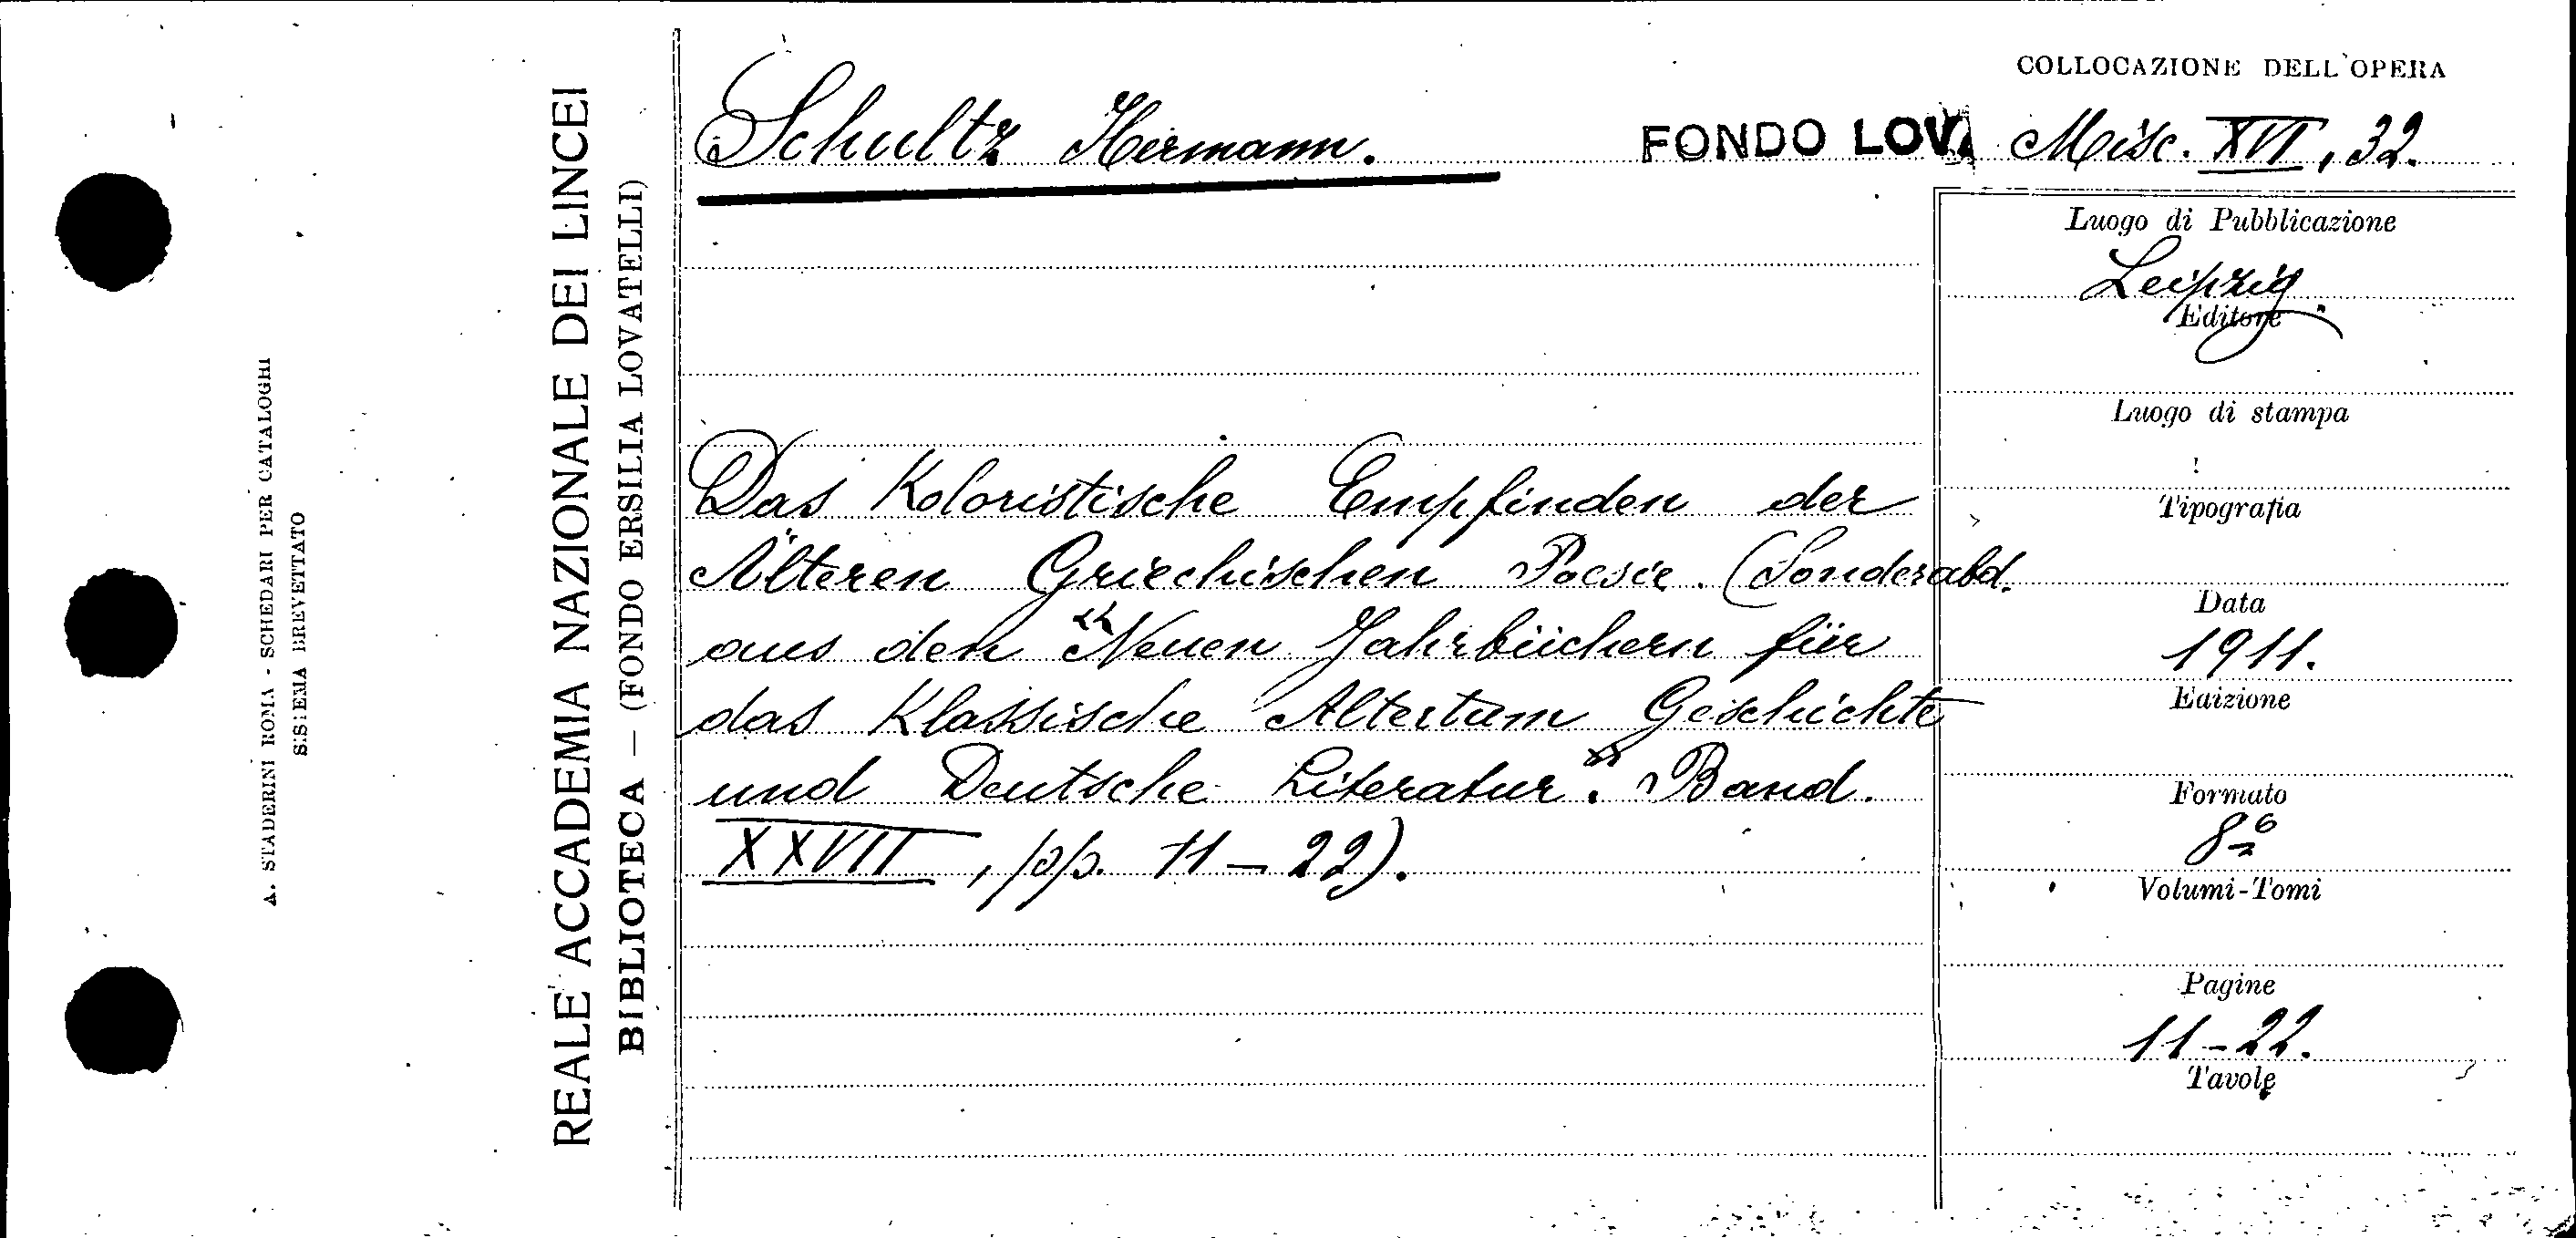 COLLOCAZIONE DELL'OPERA
Schultz Hermann.
FONDO LOV. Misc. XVI, 32.
Das Koloristische Empfinden der
Älteren Griechischen Poesie. (Sonderabd.
aus den "Neuen Jahrbüchern für
das Klassische Altertum Geschichte
und Deutsche Literatur". Band.
XXVII, pp. 11-22).
Luogo di Pubblicazione
Leipzig.
Editore
Luogo di stampa
Tipografia
Data
1911.
Edizione
Formato
8º
Volumi-Tomi
Pagine
11-22.
Tavole
REALE ACCADEMIA NAZIONALE DEI LINCEI
BIBLIOTECA — (FONDO ERSILIA LOVATELLI)
A. STADERINI ROMA - SCHEDARI PER CATALOGHI
SISTEMA BREVETTATO